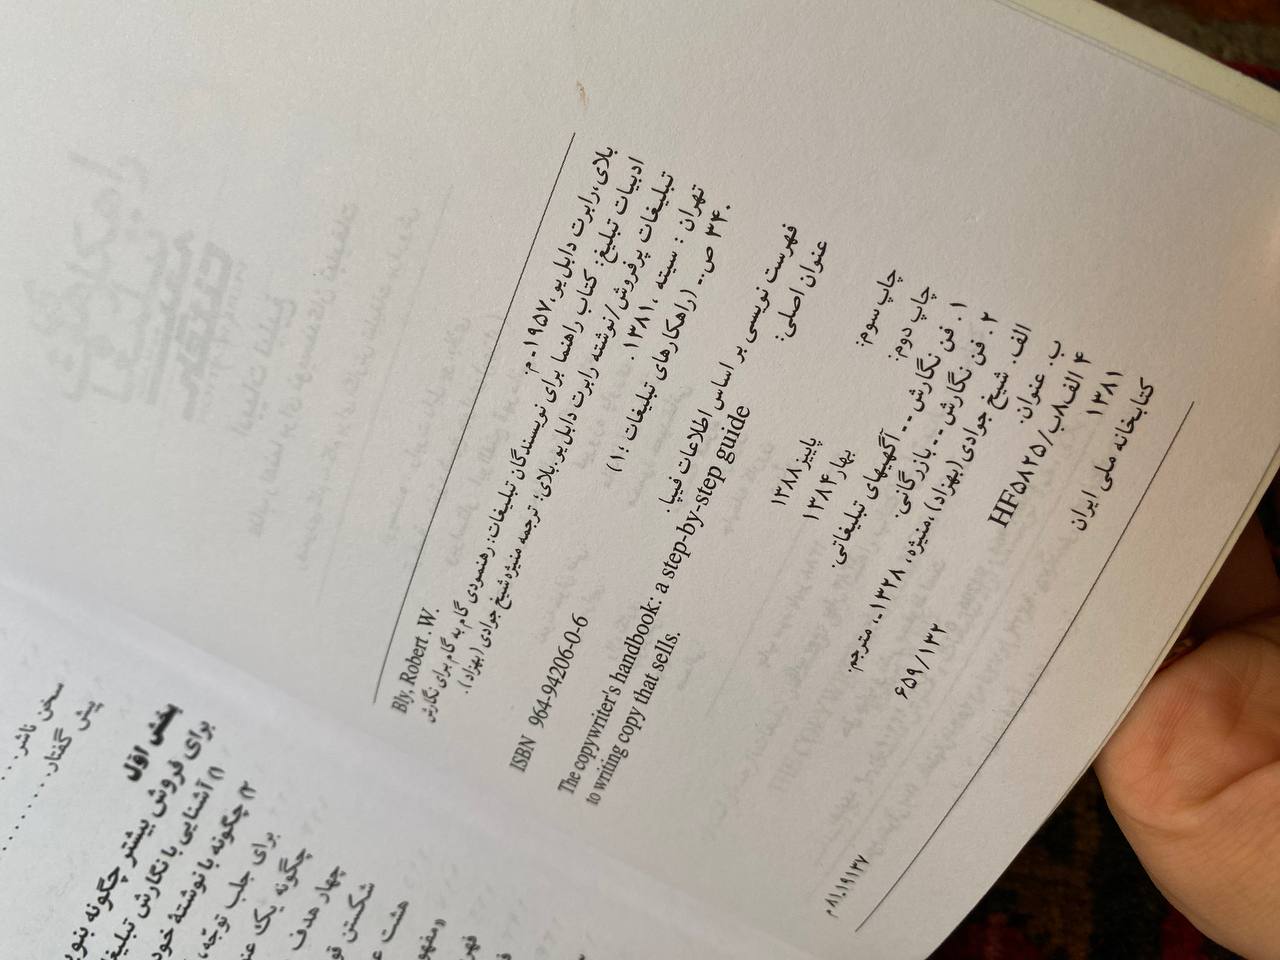 بلای، رابرت دابل‌یو، ۱۹۵۷ - م. Bly, Robert . W.
ادبیات تبلیغ: کتاب راهنما برای نویسندگان تبلیغات: رهنمودی گام به گام برای نگارش
تبلیغات پرفروش/نوشته رابرت دابل‌یو. بلای؛ ترجمه منیژه شیخ جوادی (بهزاد).
تهران : سیته ، ۱۳۸۱ .
۳۴۰ ص.- (راهکارهای تبلیغات :۱)
ISBN 964-94206-0-6
فهرست نویسی بر اساس اطلاعات فیپا.
عنوان اصلی:
The copywriter's handbook: a step-by-step guide
to writing copy that sells.
چاپ سوم: پاییز ۱۳۸۸
چاپ دوم: بهار ۱۳۸۴
۱ . فن نگارش - - آگهیهای تبلیغاتی.
۲ . فن نگارش - - بازرگانی.
الف. شیخ جوادی (بهزاد) ،منیژه، ۱۳۲۸ـ، مترجم.
ب. عنوان.
۴ الف۸ب/ HF۵۸۲۵ ۶۵۹/۱۳۲
۱۳۸۱
کتابخانه ملی ایران م۸۱ـ۱۹۱۳۷
سخن ناشر
پیش گفتار
بخش اوّل
برای فروش بیشتر چگونه
۱) آشنایی با نگارش
۲) چگونه با نوشتهٔ خود
برای جلب توجّه،
چگونه یک
چهار هدف
شکستن
هشت